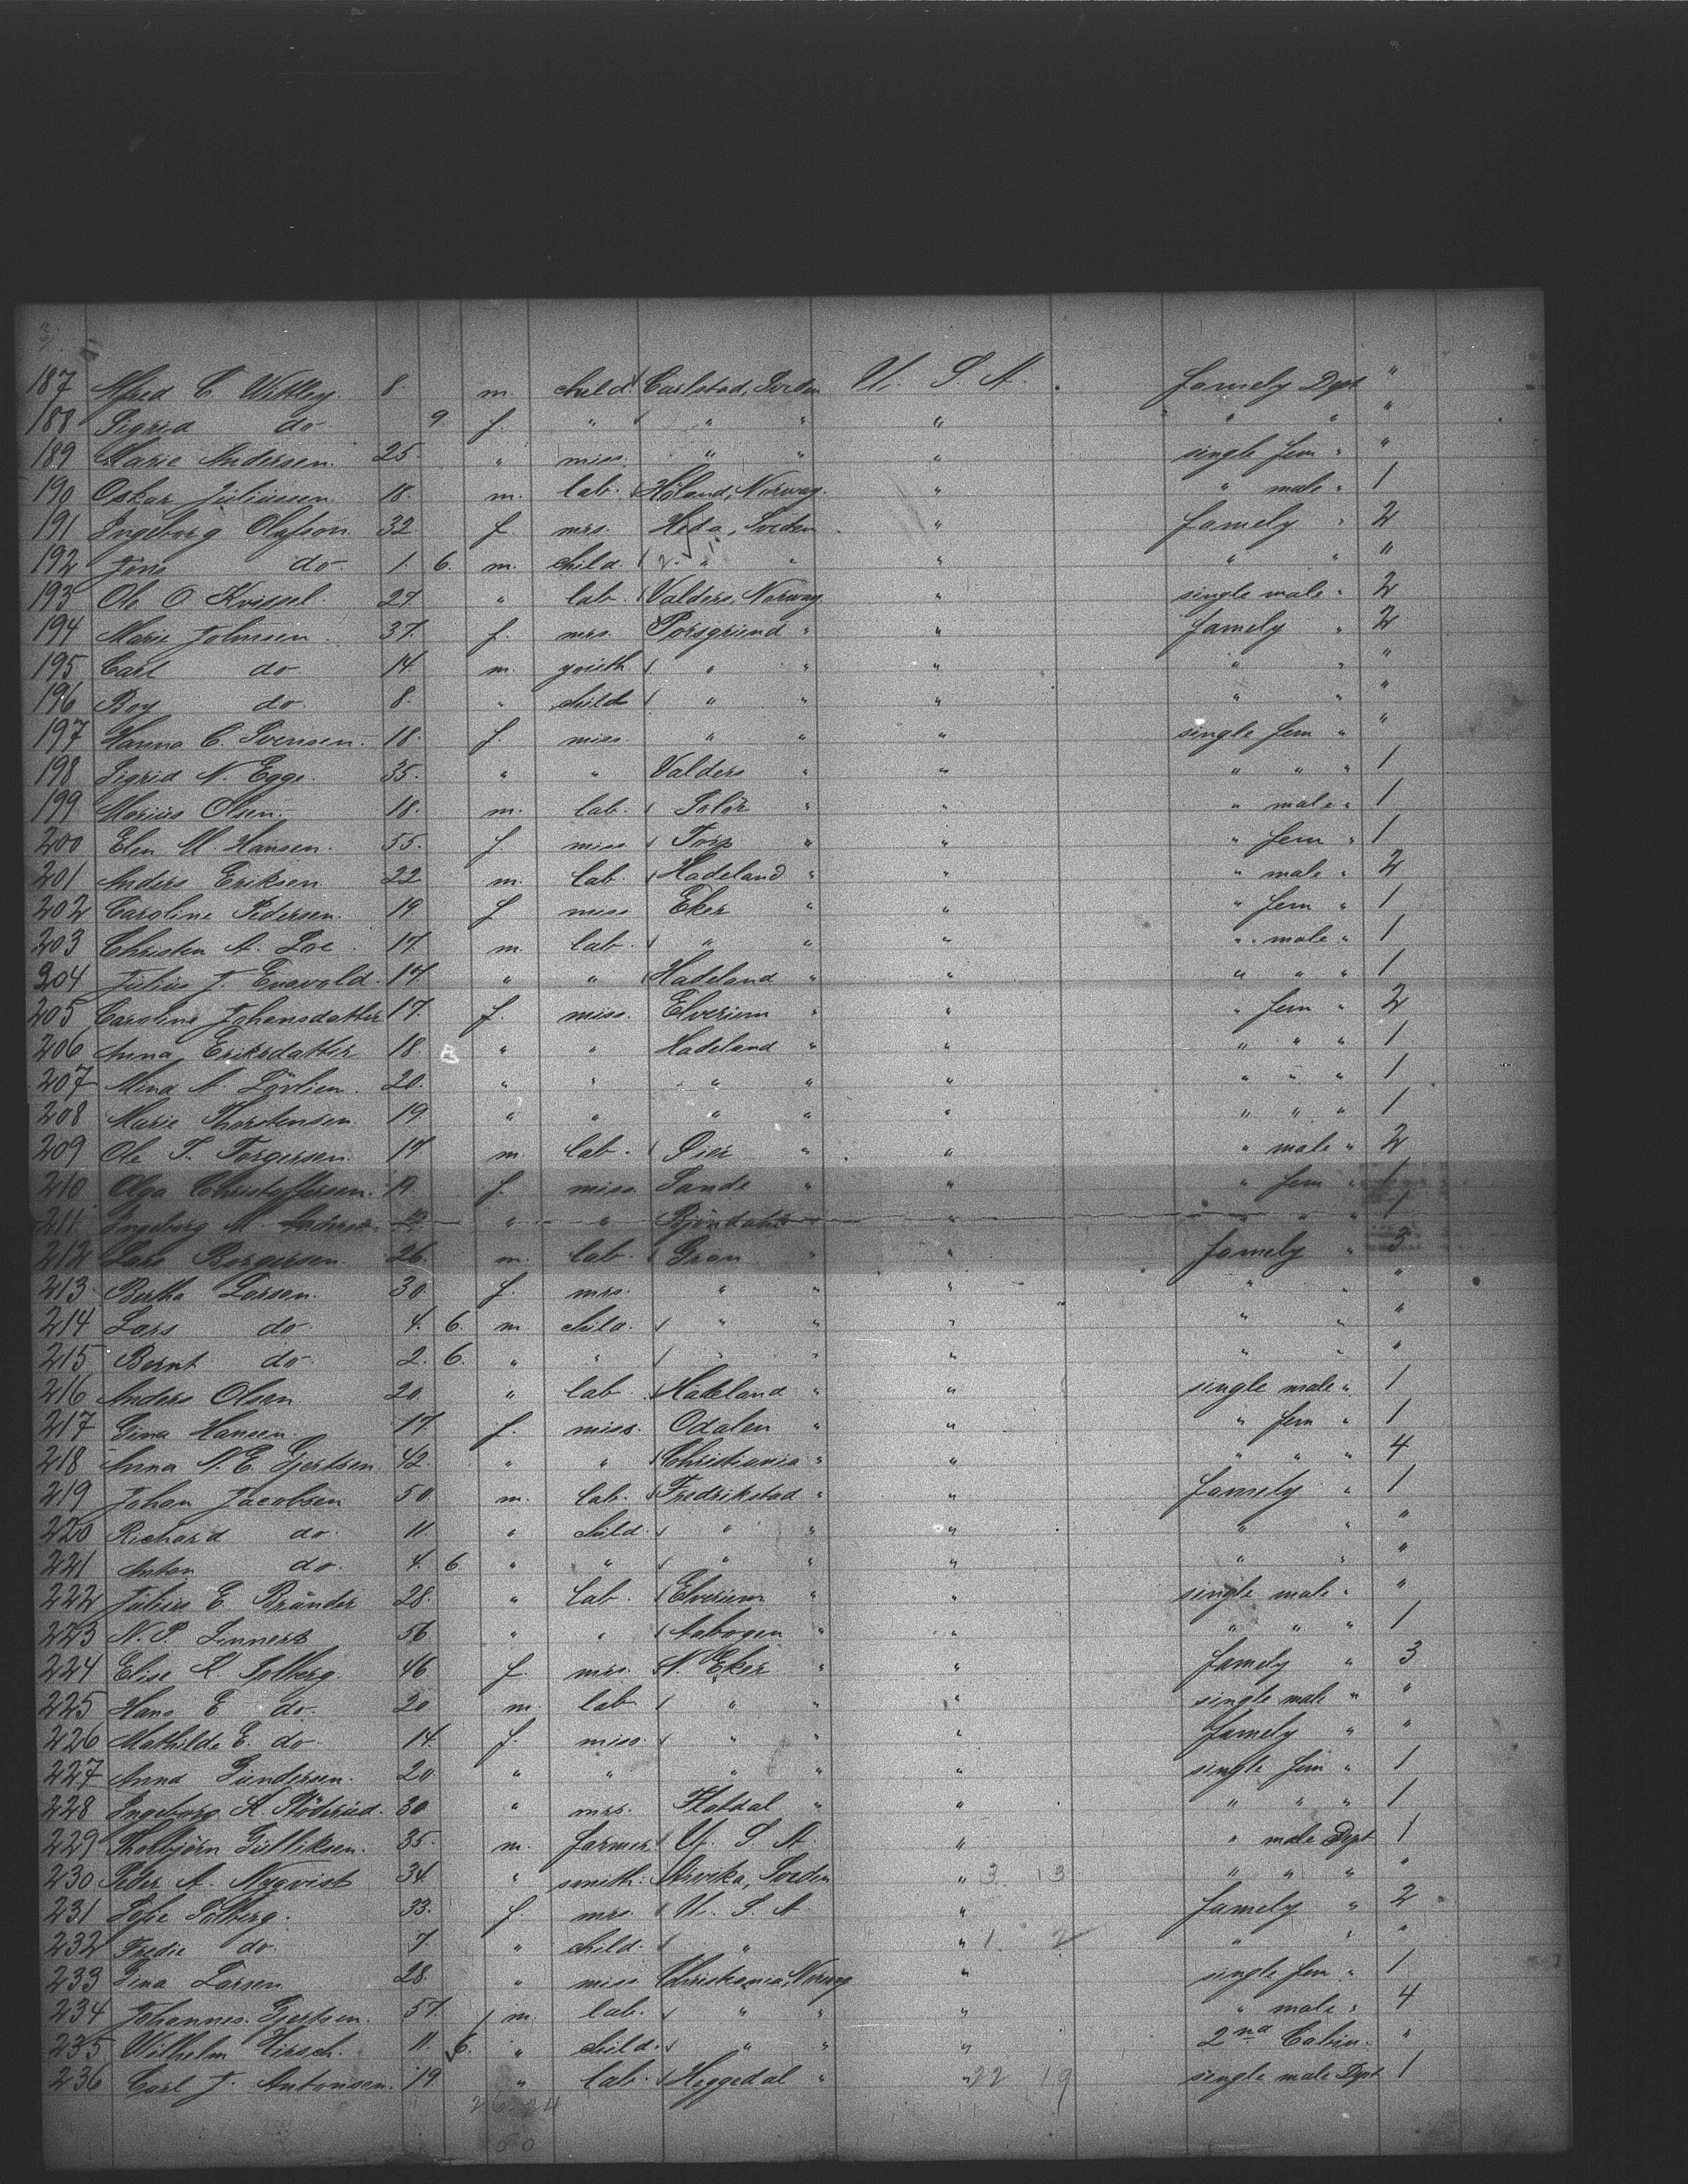 3)
187 Alfred C. Wittley. 8. m. child Carlstad, Sveden U. S. A. famely Dept "
188 Sigrid do 9 f. " " " " " " "
189 Marie Andersen. 25. " miss. " " " single fem " "
190 Oskar Juliussen. 18. m. lab. Höland, Norway. " " male " 1
191 Ingeborg Olafson. 32 f. mrs. Heda, Sveden " famely " 2
192 Jöns do. 1. 6. m. child " " " " " "
193 Ole O 27. " lab. Valders, Norway " single male " 2
194 Marie Johnsen. 37. f. mrs. Porsgrund " " famely " 2
195 Carl do. 14. m. youth " " " " " "
196 Roy do. 8. " child " " " " " "
197 Hanna C. Svensen. 18. f. miss. " " " single fem " "
198 Sigrid N. Egge. 35. " " Valders " " " " " 1
199 Marius Olsen. 18. m. lab. Solör " " " male " 1
200 Elen M. Hansen. 55. f. miss " " " fem " 1
201 Anders Eriksen 22 m. lab. Hadeland " " " male " 2
202 Caroline Pedersen. 19 f miss Eker " " " fem " 1
203 Christen A. Loe. 17. m. lab. " " " " male " 1
204 Julius J. 14. " " Hadeland " " " " " 1
205 Caroline Johansdatter 17. f. miss. Elverum " " " fem " 2
206 Anna Eriksdatter 18. " " Hadeland " " " " " 1
207 Mina A. 20. " " " " " " " " 1
208 Marie Thorstensen. 19 " " " " " " " " 1
209 Ole T. Torgersen. m. lab. " " " male " 2
210 Olga Christoffersen. 19 f. miss. Sande " " " fem " 1
211 Ingeborg M. " " " " " " " 1
212 Lars Borgersen. 26. m. lab. Gran " " famely " 3
213 Bertha Larsen. 30. f. mrs. " " " " " "
214 Lars do. 4. 6. m. child. " " " " " "
215 Bernt do. 2. 6. " " " " " " " "
216 Anders Olsen 20. " lab. Hadeland " " single male " 1
217 Gina Hansen. 17. f. miss. Odalen " " " fem " 1
218 Anna N. E. Gjertsen. 42. " " Christiania " " " " " 4
219 Johan Jacobsen 50. m. lab. Fredrikstad " " famely " 1
220 Richard do. 11. " child. " " " " " "
221 Anton do. 4. 6 " " " " " " " "
222 Julius E. Brander 28. " lab. Elverum " " single male " "
223 N. P. 56 " " Aabogen " " " " " 1
224 Elise K. Solberg. 46. f. mrs. N. Eker " " famely " 3
225 Hans E do. 20. m. lab " " " single male " "
226 Mathilde E. do. 14. f. miss. " " " famely " "
227 Anna Gundersen. 20. " " " " " single fem " 1
228 Ingeborg K. 30 " mrs. Flatdal " " " " " 1
229 Thorbjörn Gulliksen. 35. m. farmer U. S. A. " " male Dept 1
230 Peder A. Nyqvist 34. " smith. Arvika, Sveden " 3 13 " " " "
231 Sofie Solberg. 33. f. mrs. U. S. A " famely " 2
232 Fredie do 7. " child. " " 1 2 " " "
233 Gina Larsen 28. " miss Christiania, Norway " single fem " 1
234 Johannes Gjertsen. 57. m. lab. " " " " male " 4
235 Wilhelm Hirsch. 11. 6. " child. " " " 2nd Cabin. "
236 Carl J. Antonsen. 19. " lab. Heggedal " " 22 19 single male Dept 1
26 24
50